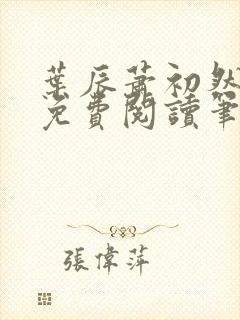 葉辰蕭初然
免費閱讀筆
張偉萍